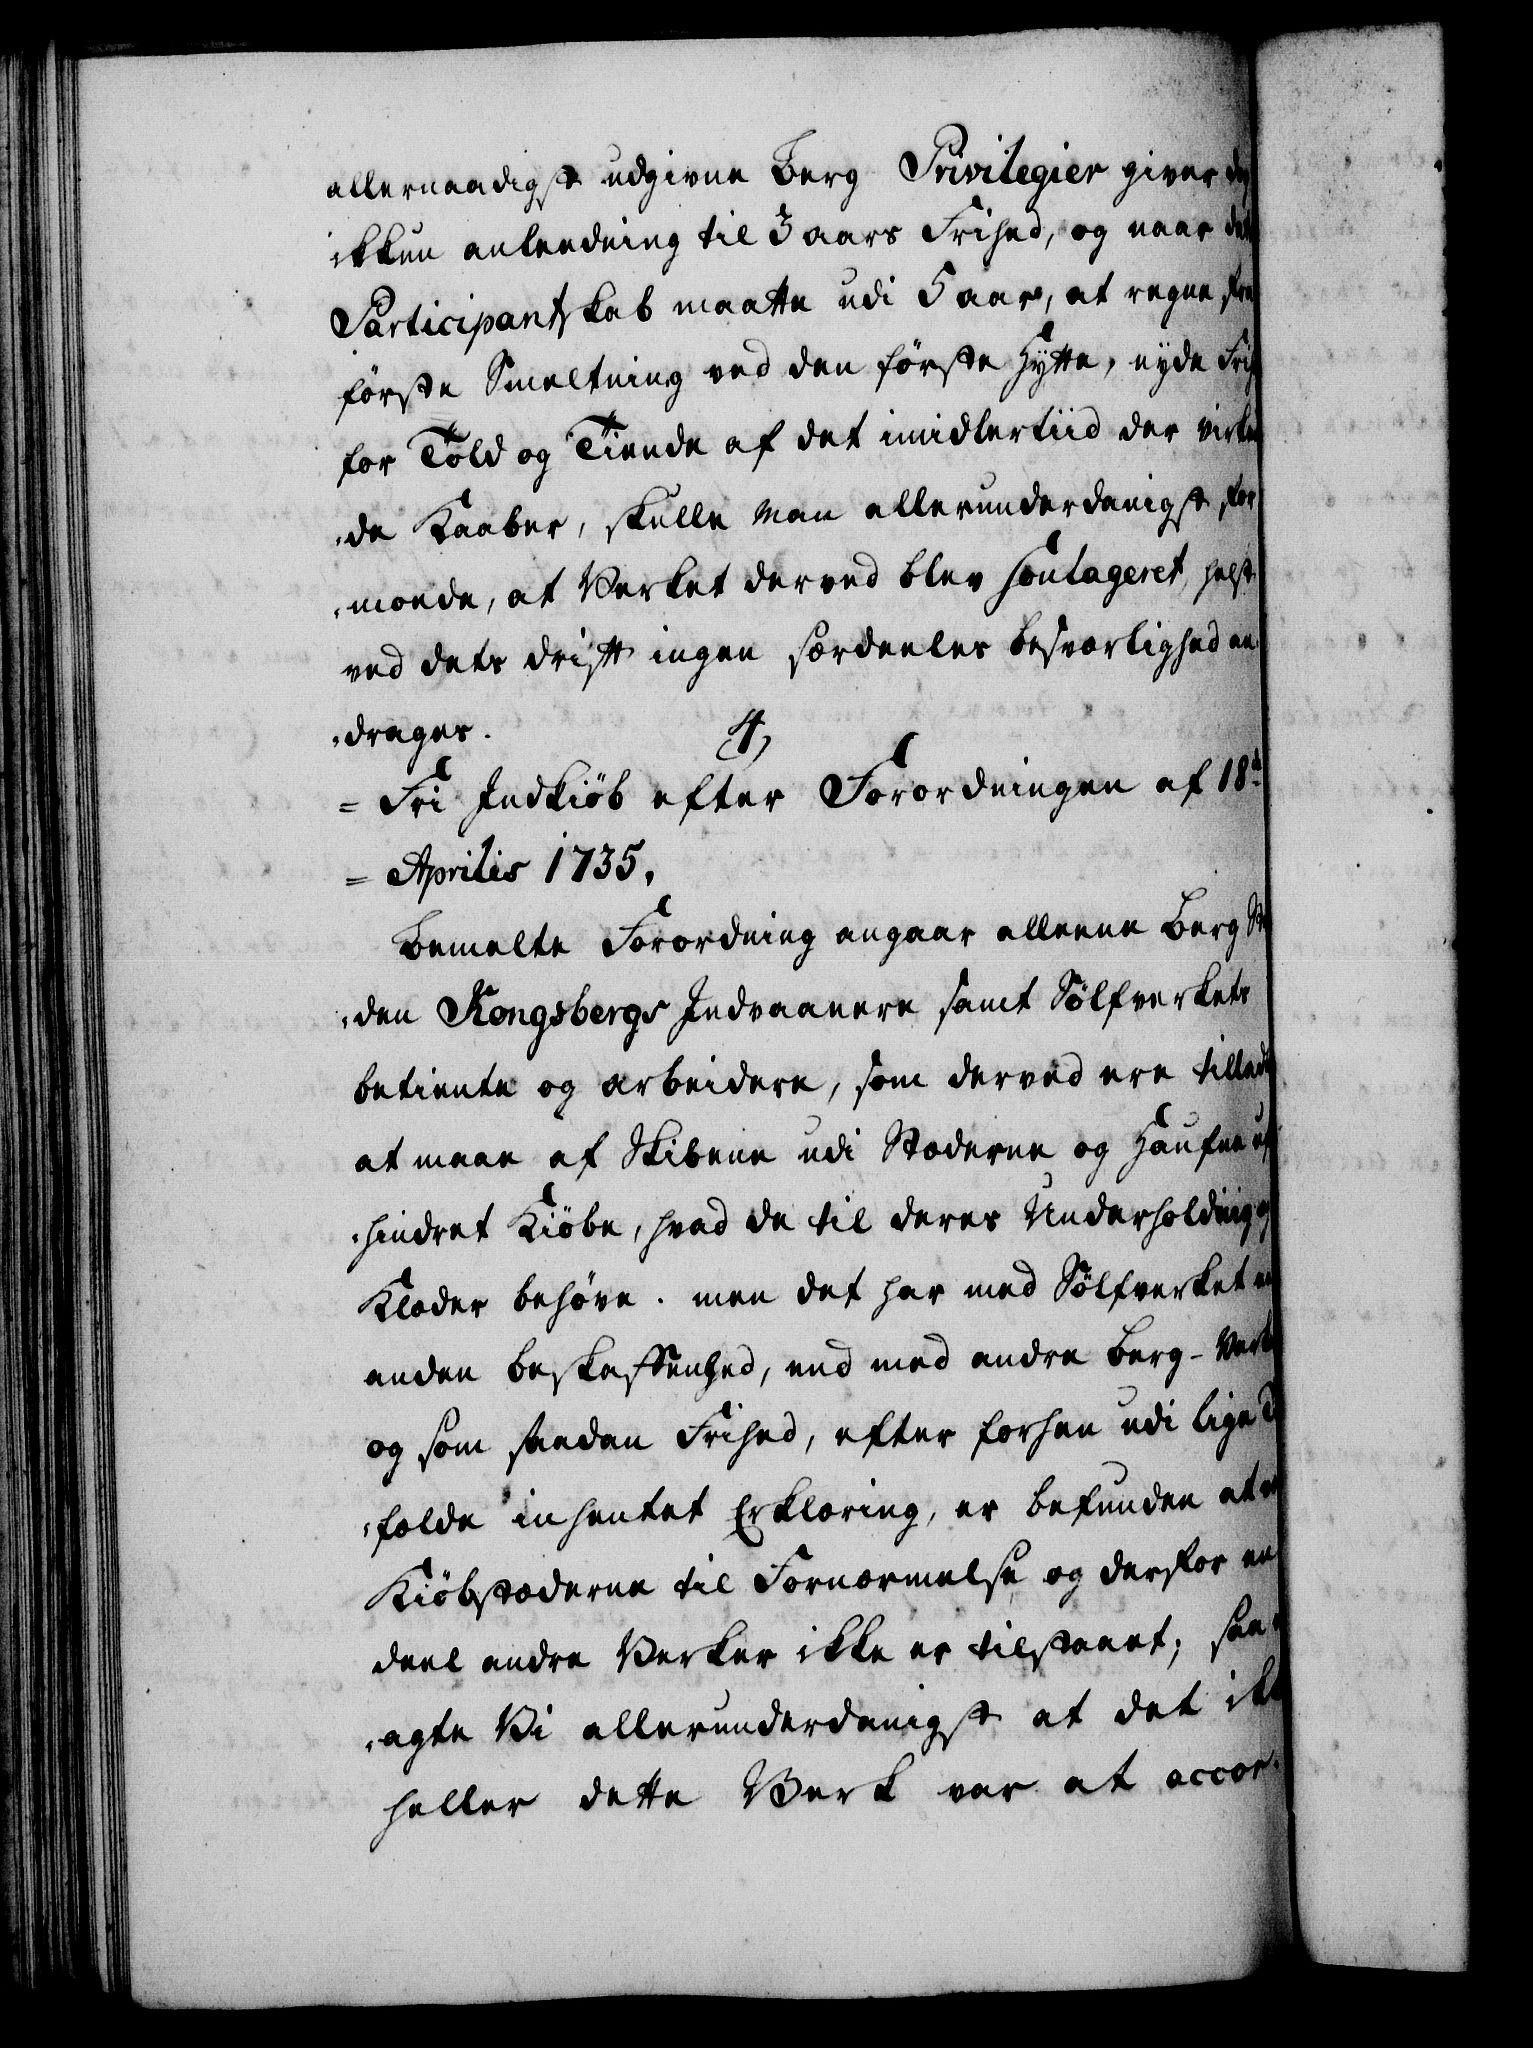 allernaadigst udgivne Berg Privilegier giver
ikkun anleedning til 3 aars Frihed, og naar
Participantskab maatte udi 5 aar, at regne fra
første Smeltning ved den første Hytte, nyde
for Told og Tiende af det imidlertiid der virken
„de Kaaber, skulle Man allerunderdanigst for
„moede, at Verket derved blev soulageret, helst
ved dets drift ingen særdeeles besværlighed an
„drages.
4,
= Fri Indkiöb efter Forordningen af 18de
= Aprilis 1735.
Bemelte Forordning angaar alleene Berg
„den Kongsbergs Indvaanere samt Sölfverkets
betiente og arbeidere, som derved ere tilladt
at maae af Skibene udi Stæderne og Haufne
„hindret Kiöbe, hvad de til deres Underholdning og
Klæder behöve. men det har med Sölfverket
anden beskaffenhed, end med andre Berg-Verker
og som saadan Frihed, efter forhen udi lige
„fælde inhentet Erklæring, er befunden at
Kiöbstæderne til Fornærmelse og derfor en
deel andre Verker ikke er tilstaaet; saa
„agte Vi allerunderdanigst at det ikke
heller dette Verk var at accor„